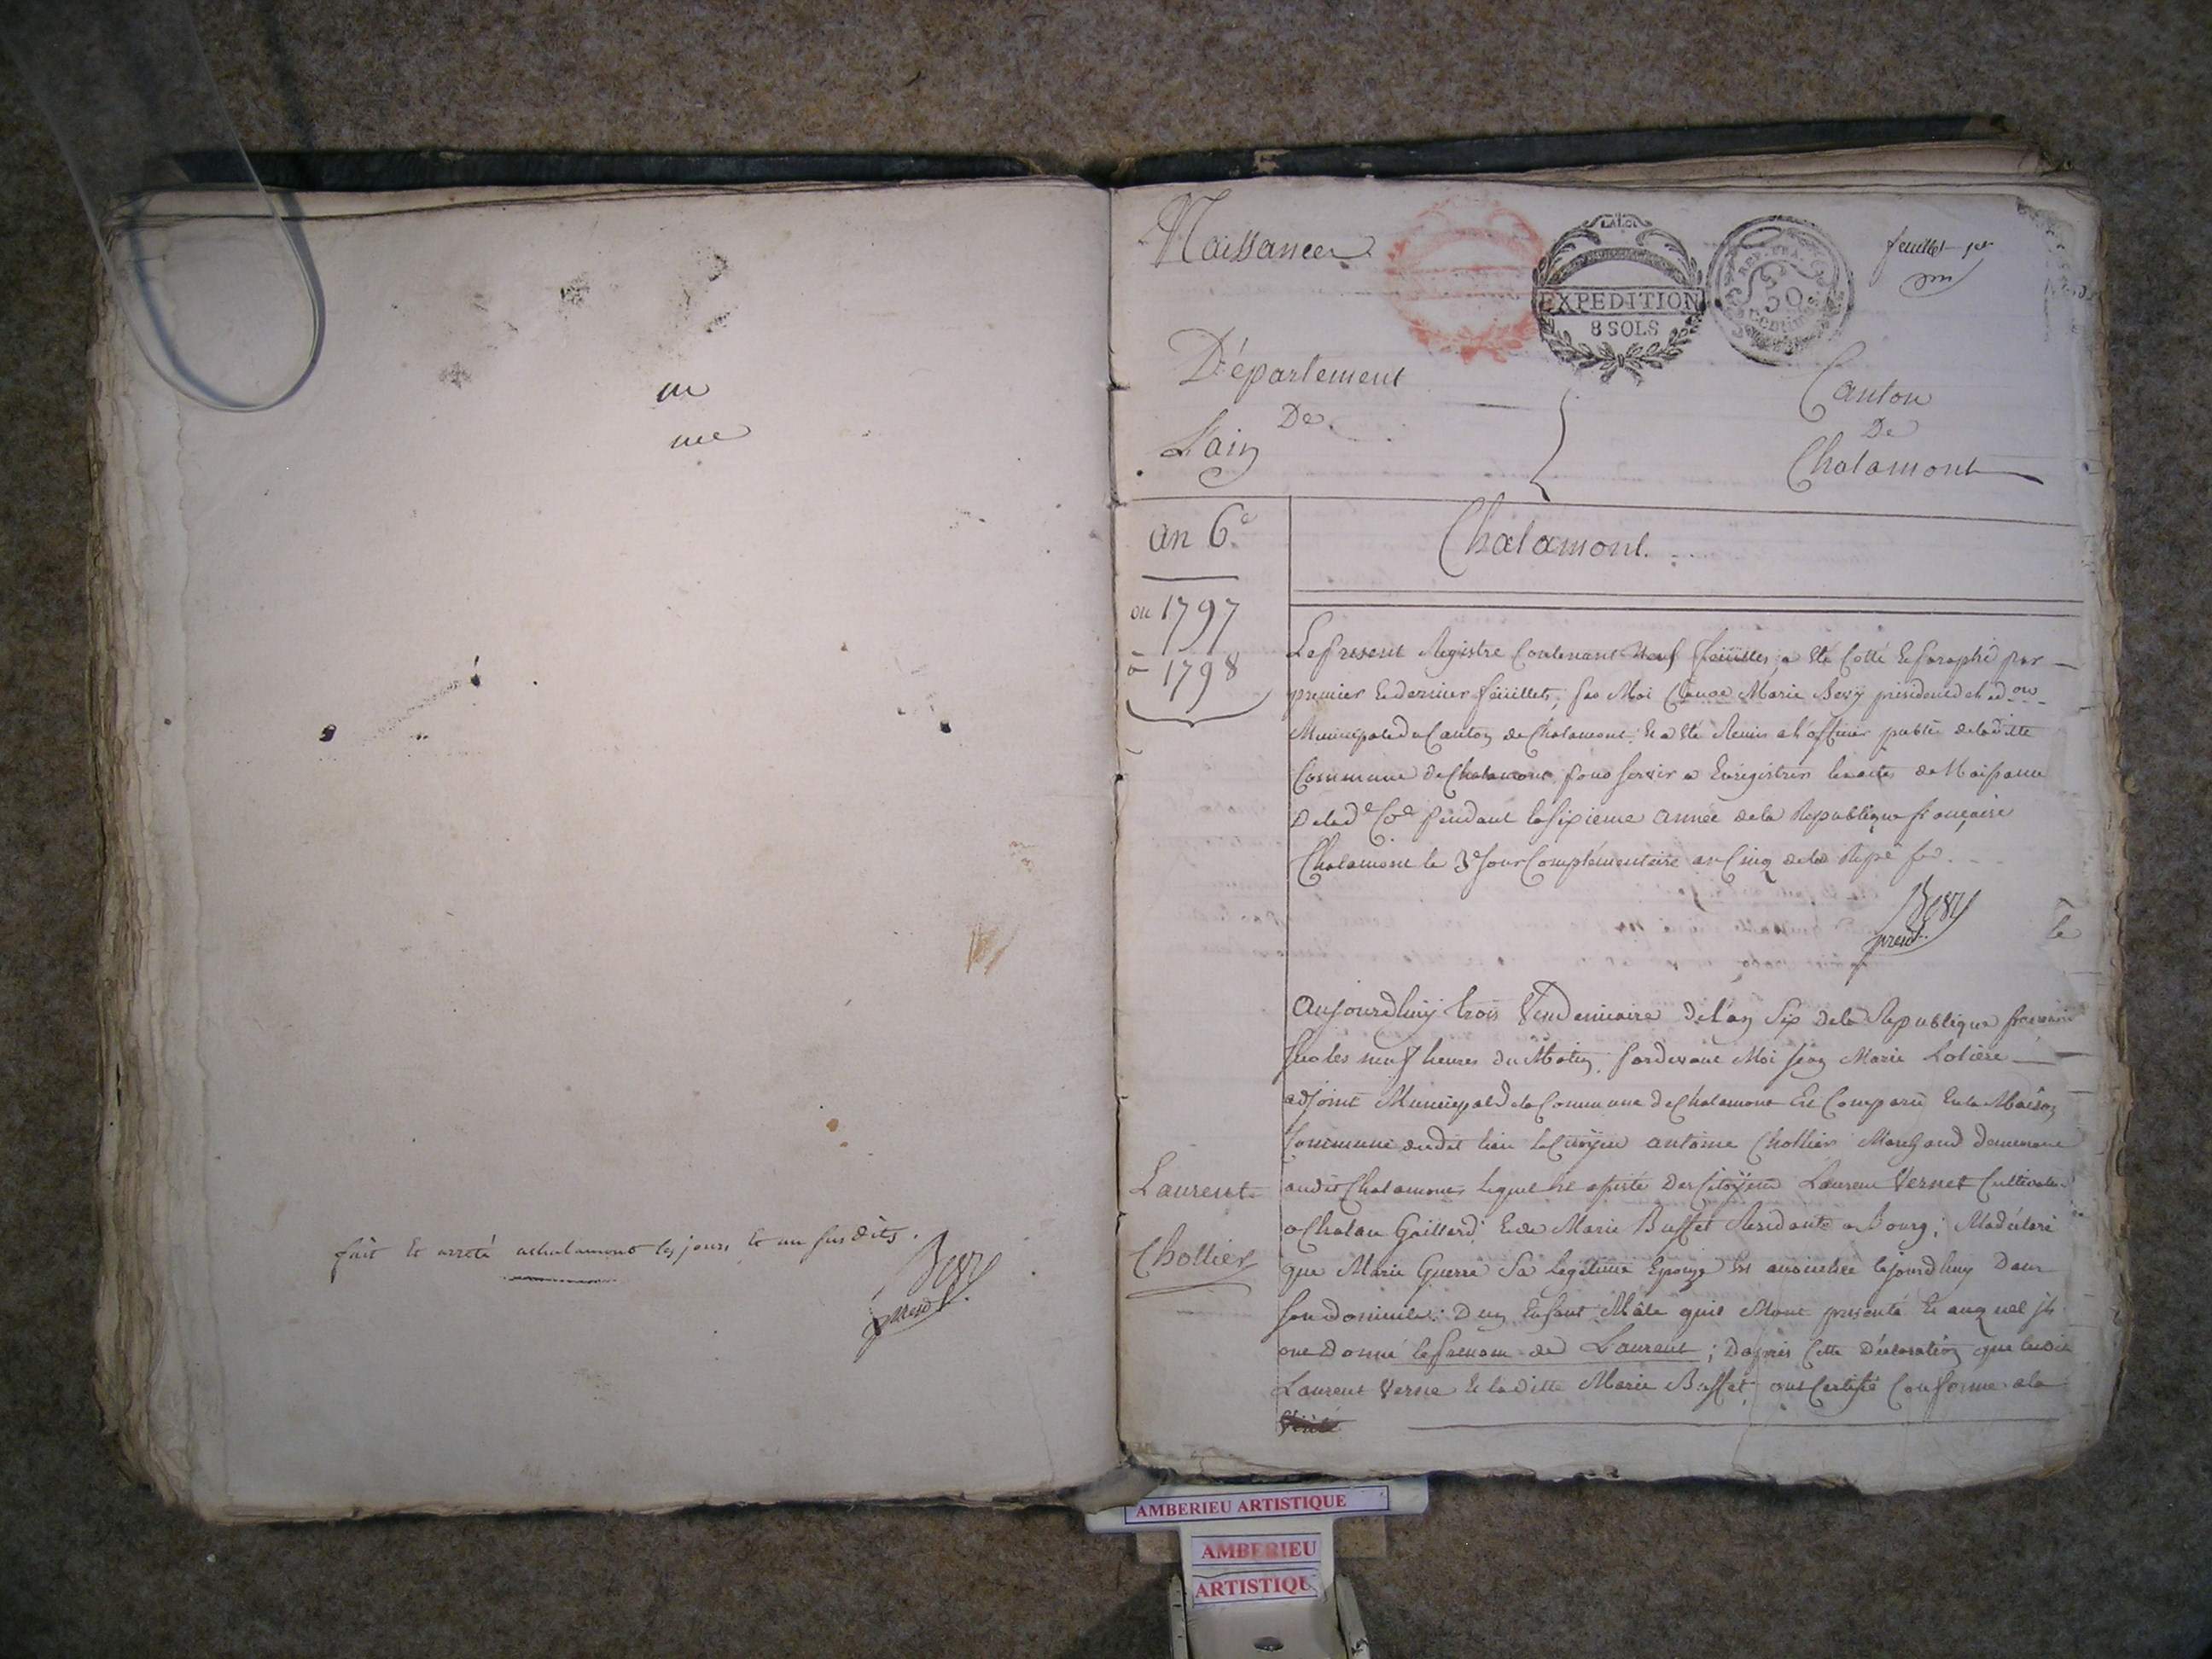 fait et arreté achalamont les jours et an susdits.
Bery
presdt.
Naissances
LA LOI
EXPEDITION
8 SOLS
REP. FRA.
50
Centimes
feuillet 1er
Département
De
L'ain
Canton
De
Chalamont
an 6e
ou 1797
à 1798
Chalamont.
Le present Registre Contenant Neuf feüilles, a été Cotté et paraphé par
premier et dernier feüillet, par Moi Claude Marie Bery président de l'ad.on
Municipale du Canton de Chalamont. Et a été Remis a l'officier public de la ditte
Commune de Chalamont pour servir a Enregistrer les actes de Naissance
De lad.e Coe pendant la sixieme année de la Republique française
Chalamont le 3e Jour Complémentaire an Cinq de la Repe fse.
Bery
presdt.
le
Aujourdhuy trois Vendemiaire de l'an Six De la Republique francaise
sur les neuf heures du Matin, pardevant Moi Jean Marie Loliere
adjoint Municipal de la Commune de Chalamont Est Comparu En la Maison
Commune dudit lieu le Citoyen antoine Chollier Marchand demeurant
audit Chalamont, lequel est assisté Des Citoyens Laurent Vernet Cultivateur
a Chatenu Gaillard, Et de Marie Buffet Residante a Bourg; Ma déclaré
que Marie Guerre Sa Legitime Epouze Est accouchée lejourdhuy Dans
son domicile: D'un Enfant Mâle quis Mont presenté Et auquel ils
ont Donné le prenom de Laurent; Dapres Cette Déclaration que ledit
Laurent Verne Et laditte Marie Buffet ont Certifié Conforme a la
Laurent
Chollier
AMBERIEU ARTISTIQUE
AMBERIEU
ARTISTIQU